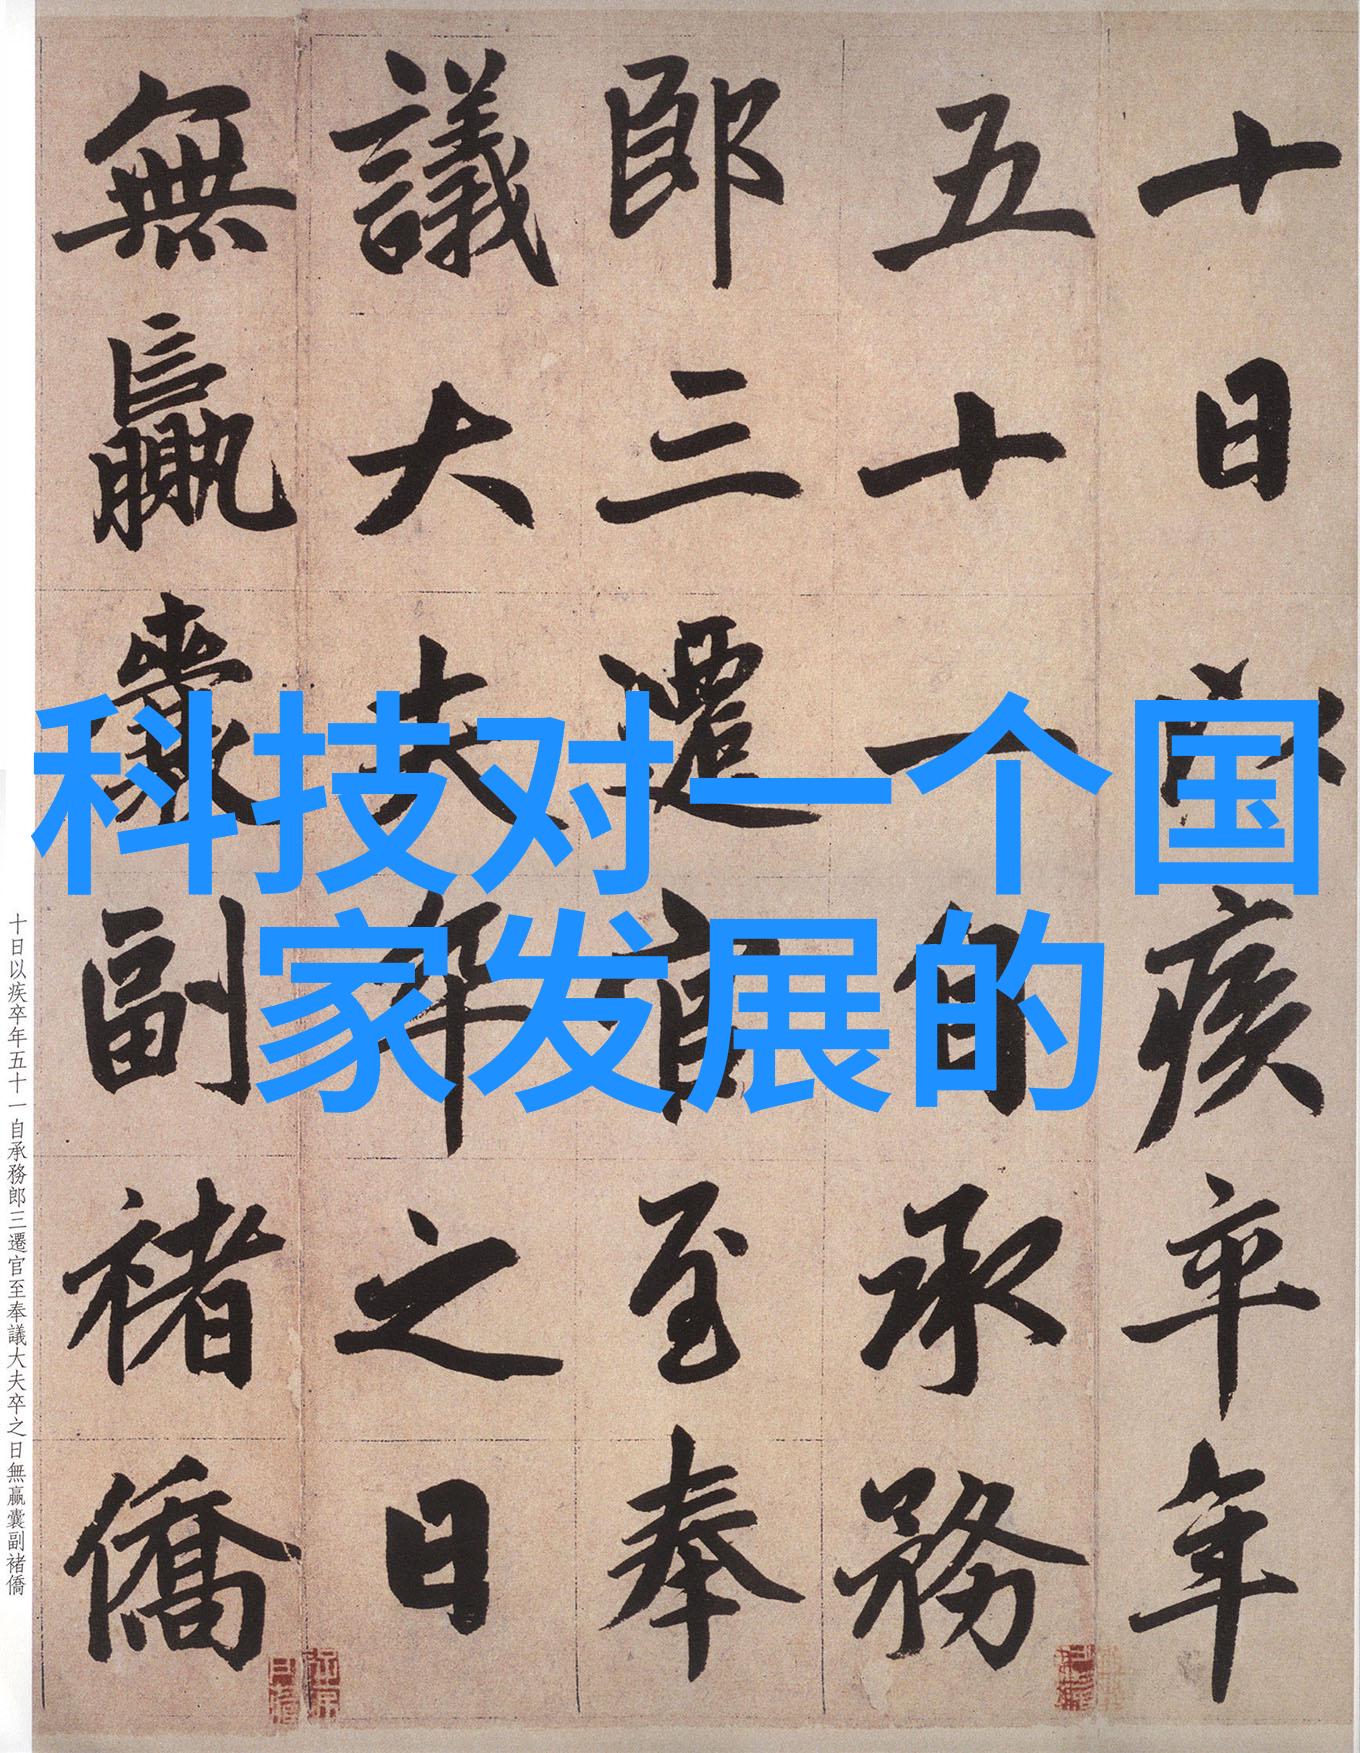 十日以疾卒年
五十一自承務
郎三遷官至奉
議大夫卒之日
無贏囊副褚僑
科技对一个国
家发展的
十日以疾卒年五十一自承務郎三遷官至奉議大夫卒之日無贏囊副褚僑